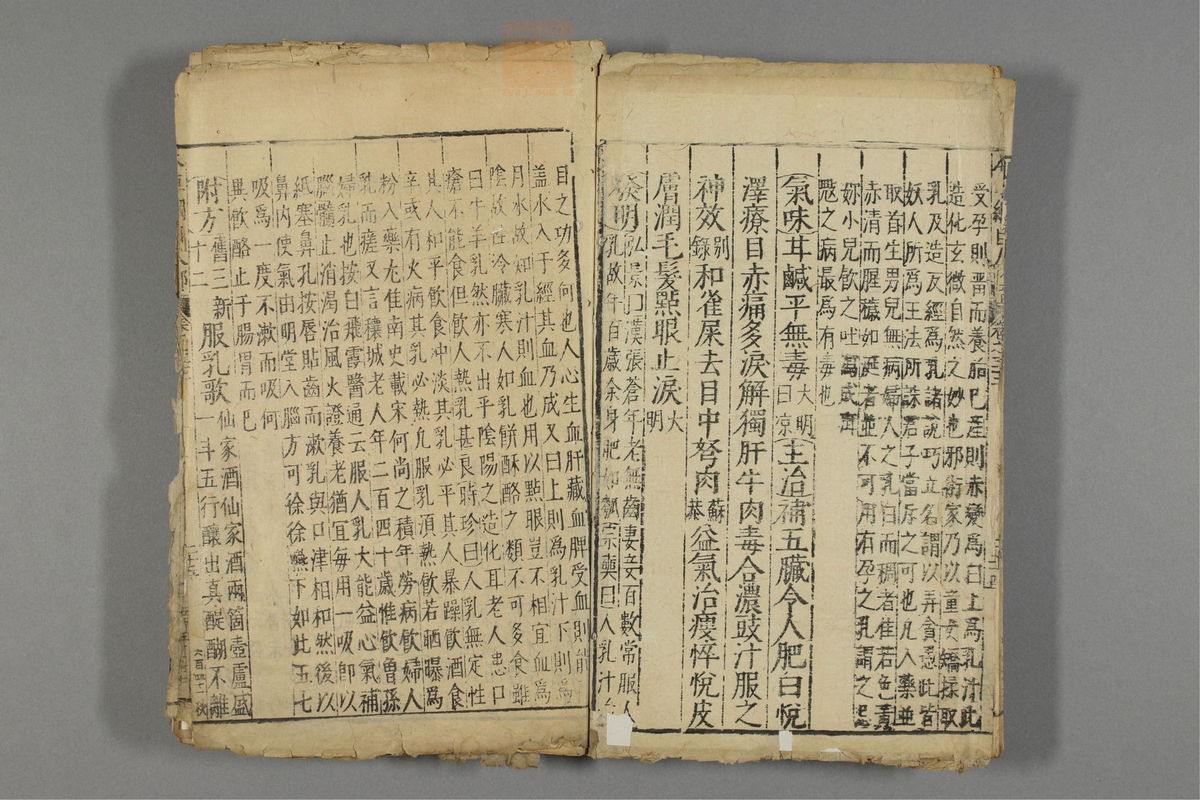 受孕則畱而養胎已產則赤變爲白上爲乳汁此
造化玄微自然之妙也邪術家乃以童女矯揉取
乳及造反經爲乳諸說巧立名謂以弄貪愚此皆
妖人所爲王法所誅君子當斥之可也凡入藥並
取首生男兒無病婦人之乳白而稠者佳若色黃
赤清而腥穢如涎者並不可用有孕之乳謂之忌
妳小兒飲之吐瀉成疳
魃之病最爲有毒也
氣味甘鹹平無毒大明曰凉主治補五臟令人肥白悅
澤療目赤痛多淚解獨肝牛肉毒合濃豉汁服之
神效別錄和雀屎去目中努肉蘇恭益氣治瘦悴悅皮
膚潤毛髮點眼止淚大明
發明弘景曰漢張蒼年老無齒妻妾百數常服人
乳故年百歲余身肥如瓠宗奭曰人乳汁治
目之功多何也人心生血肝藏血脾受血則能
盖水入于經其血乃成又曰上則爲乳汁下則爲
月水故知乳汁則血也用以點眼豈不相宜血爲
陰故性冷臟寒人如乳餅酥酪之類不可多食雖
曰牛羊乳然亦不出乎陰陽之造化耳老人患口
瘡不能食但飲人熱乳甚良時珍曰人乳無定性
其人和平飲食沖淡其乳必平其人暴躁飲酒食
辛或有火病其乳必熱凡服乳湏熱飲若晒曝爲
粉入藥尤佳南史載宋何尚之積年勞病飲婦人
乳而瘥又言穰城老人年二百四十歲惟飲曾孫
婦乳也按白飛霞醫通云服人乳大能益心氣補
腦髓止消渴治風火證養老猶宜每用一吸卽以
紙塞鼻孔按唇貼齒而漱乳與口津相和然後以
鼻內使氣由明堂入腦方可徐徐嚥下如此五七
吸爲一度不漱而吸何
異飲酪止于腸胃而已
附方舊三新十二服乳歌仙家酒仙家酒兩箇壺盧盛
一斗五行釀出真醍醐不離